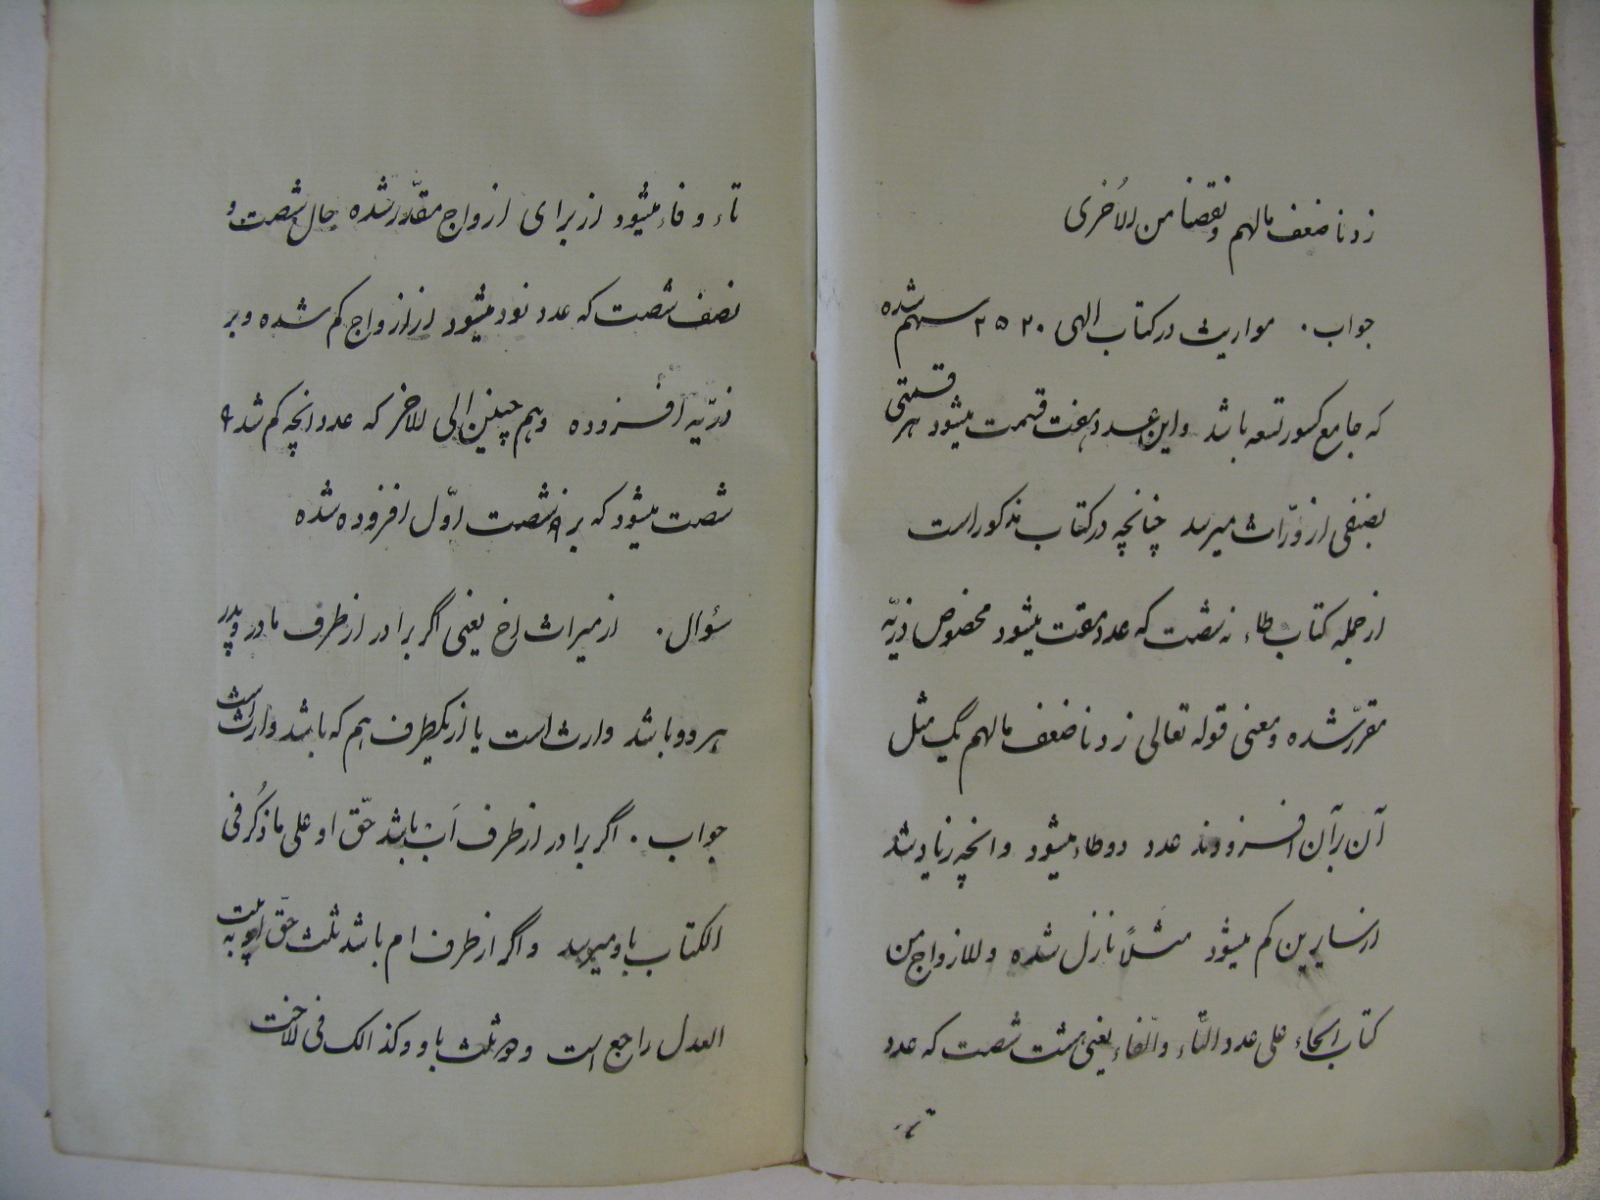 زدنا ضعف مالهم و نقصنا من الاُخری
جواب . مواریث در کتاب الهی ۲۵۲۰ سهم شده
که جامع کسور تسعه باشد و این عدد هفت قسمت میشود هر قسمتی
بصنفی از ورّاث میرسد چنانچه در کتاب مذکور است
از جمله کتاب طاء نه شصت که عدد مقت میشود مخصوص ذریّه
مقرّر شده و معنی قوله تعالی زدنا ضعف مالهم یک مثل
آن بر آن افزودند عدد دو طاء میشود و انچه زیاد شد
از سایرین کم میشود مثلاً نازل شده و للازواج من
کتاب الحاء علی عدد التّاء و الفاء یعنی هشت شصت که عدد
تاء
تاء و فاء میشود از برای ازواج مقدّر شده حال شصت و
نصف شصت که عدد نود میشود از ازواج کم شده و بر
ذریّه افزوده و هم چنین الی الاخر که عدد انچه کم شد ۹
شصت میشود که بر ۹ شصت اوّل افزوده شده
سؤال . از میراث اخ یعنی اگر برادر از طرف مادر و پدر
هر دو باشد وارث است یا از یکطرف هم که باشد وارث است
جواب . اگر برادر از طرف اَب باشد حقّ او علی ما ذُکر فی
الکتاب باو میرسد و اگر از طرف ام باشد ثلث حقّ او به بیت
العدل راجع است و دو ثلث باو و کذالک فی الاخت